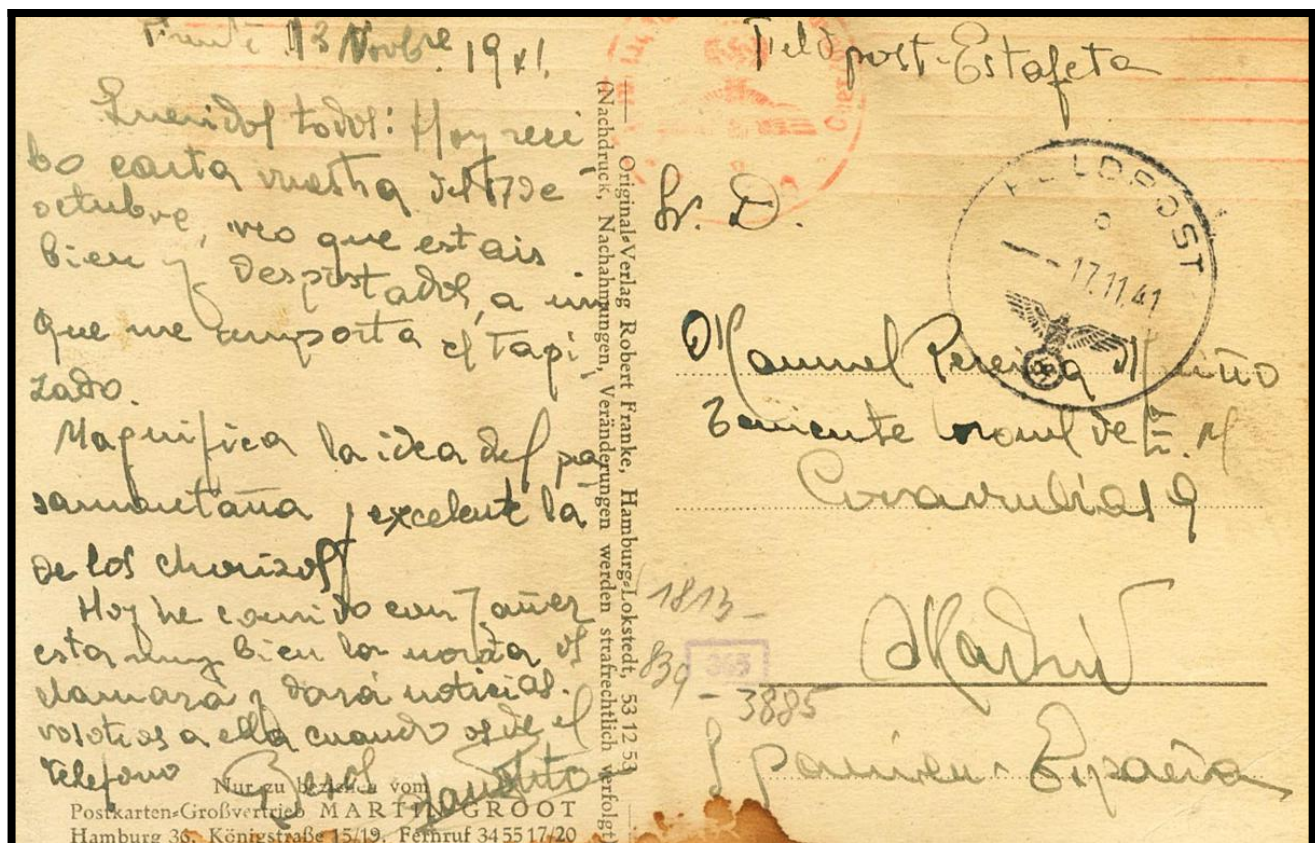 Frente 13 Novbre 1941.
Queridos todos: Hoy reci
bo carta vuestra del 17 de
octubre, veo que estais
bien y despistados, a mi
que me importa el tapi
zado.
Magnifica la idea del pa
samontaña y excelente la
de los chorizos
Hoy he comido con Javier
esta muy bien la novia os
llamará y dará noticias.
vosotros a ella cuando os de el
telefono Besos
Nur zu beziehen vom
Postkarten-Großvertrieb MARTIN GROOT
Hamburg 36, Königstraße 15/19, Fernruf 34 55 17/20
Original-Verlag Robert Franke, Hamburg-Lokstedt, 53 12 53
(Nachdruck, Nachahmungen, Veränderungen werden strafrechtlich verfolgt)
Feldpost-Estafeta
FELDPOST
17.11.41
Sr. D.
Manuel Pereira Muiño
Teniente Coronel de E. M
Covarrubias 9
Madrid
Spanien - España
1813 -
839
- 3885
363